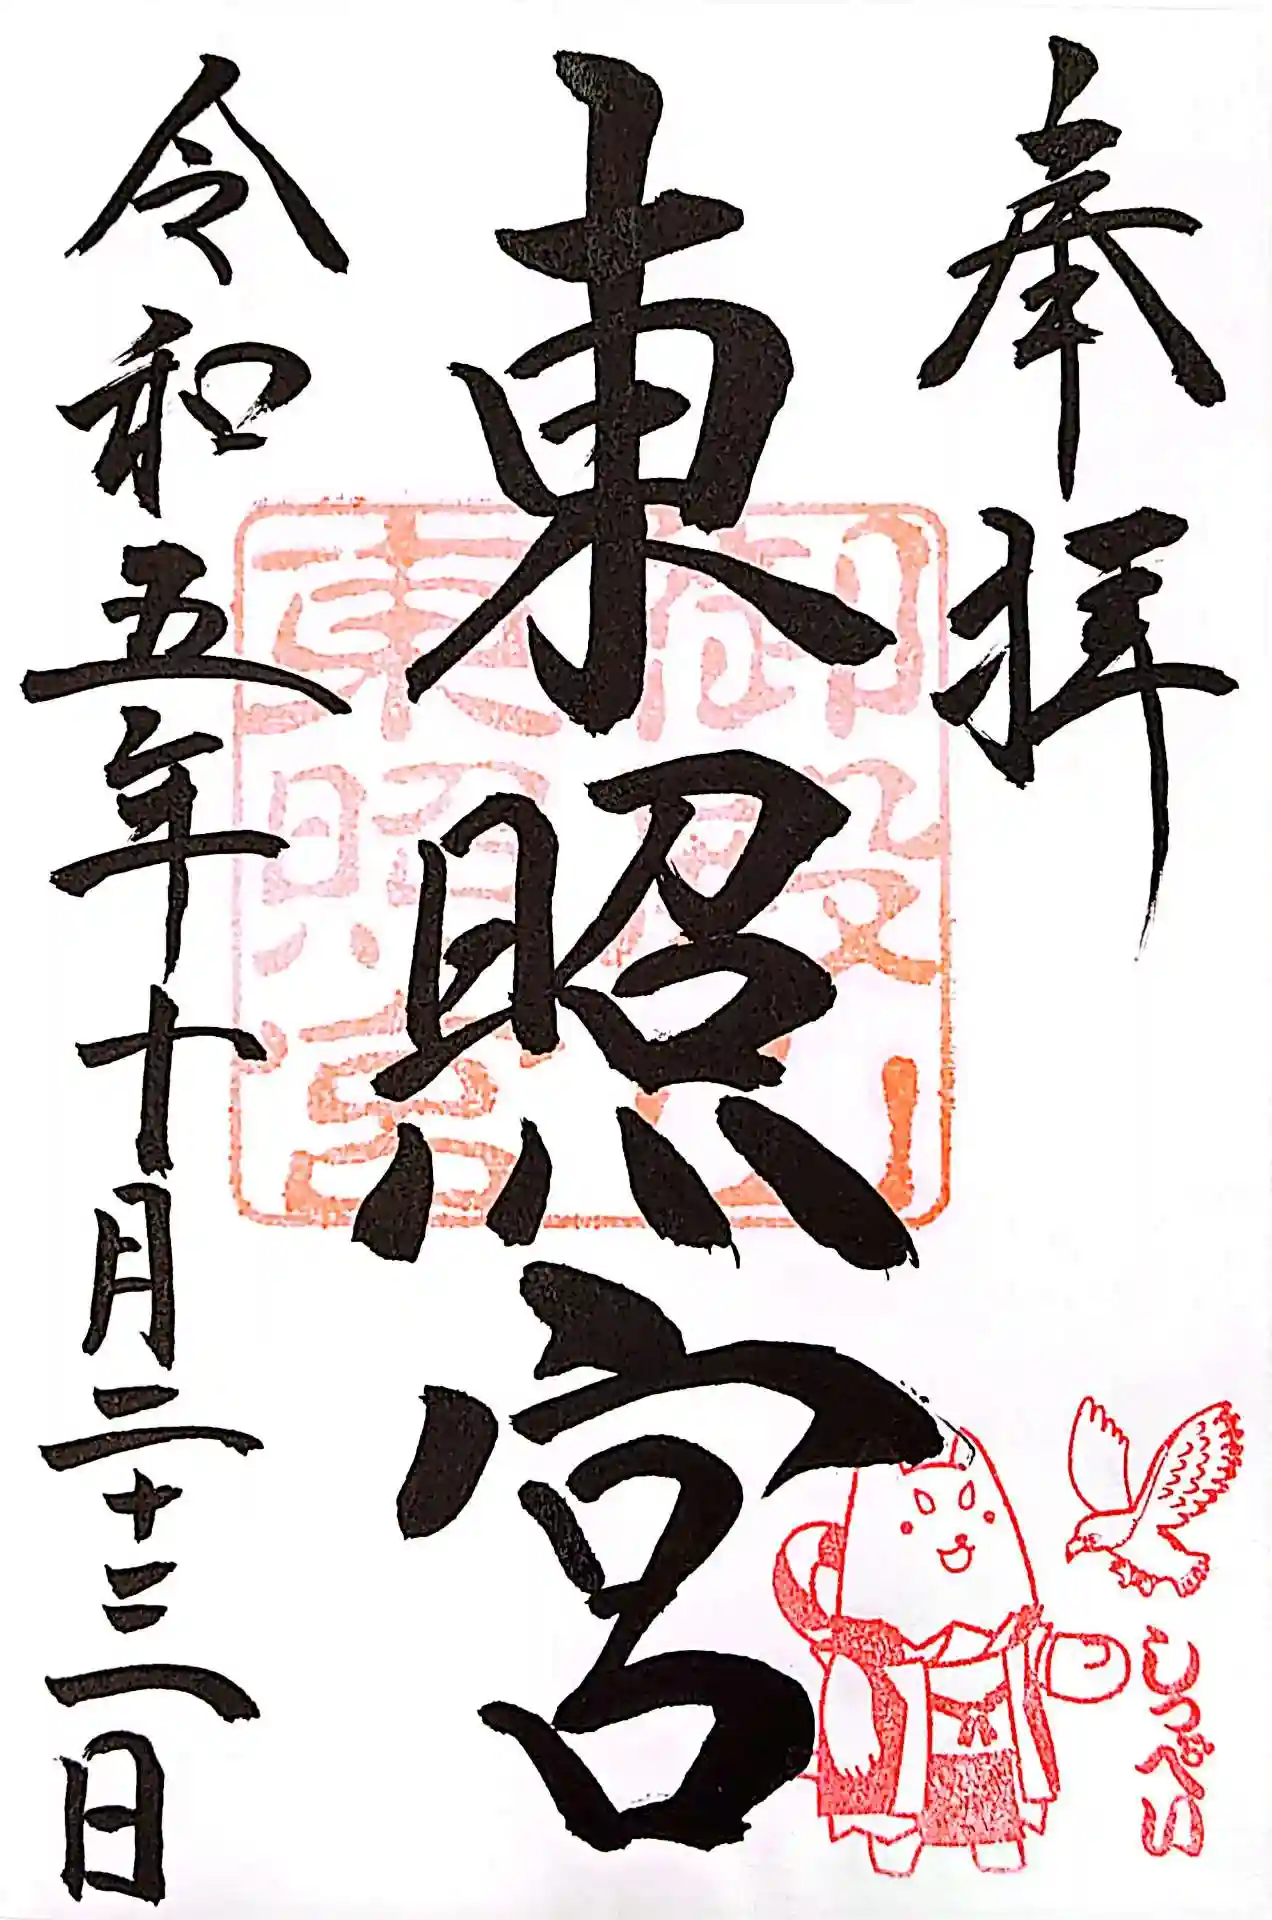 奉拝
東照宮
御殿山
東照宮
令和五年十月二十三日
しっぺい